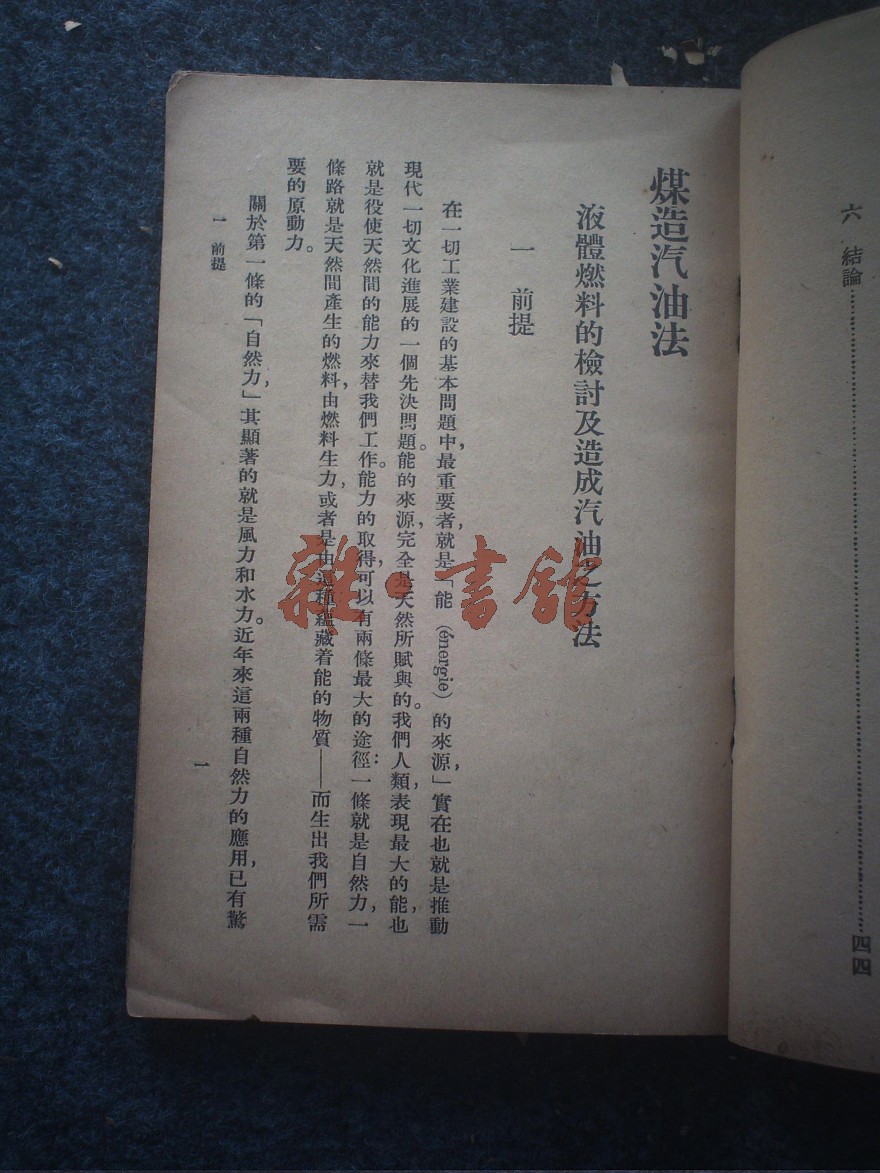 六 結論……………………四四
煤造汽油法
液體燃料的檢討及造成汽油之方法
一 前提
在一切工業建設的基本問題中，最重要者，就是「能（énergie）的來源，」實在也就是推動
現代一切文化進展的一個先決問題。能的來源，完全是天然所賦與的。我們人類，表現最大的能，也
就是役使天然間的能力來替我們工作。能力的取得，可以有兩條最大的途徑：一條就是自然力，一
條路就是天然間產生的燃料，由燃料生力，或者是由這種蘊藏着能的物質——而生出我們所需
要的原動力。
關於第一條的「自然力，」其顯著的就是風力和水力。近年來這兩種自然力的應用，已有驚
一 前提
一
雜·書館